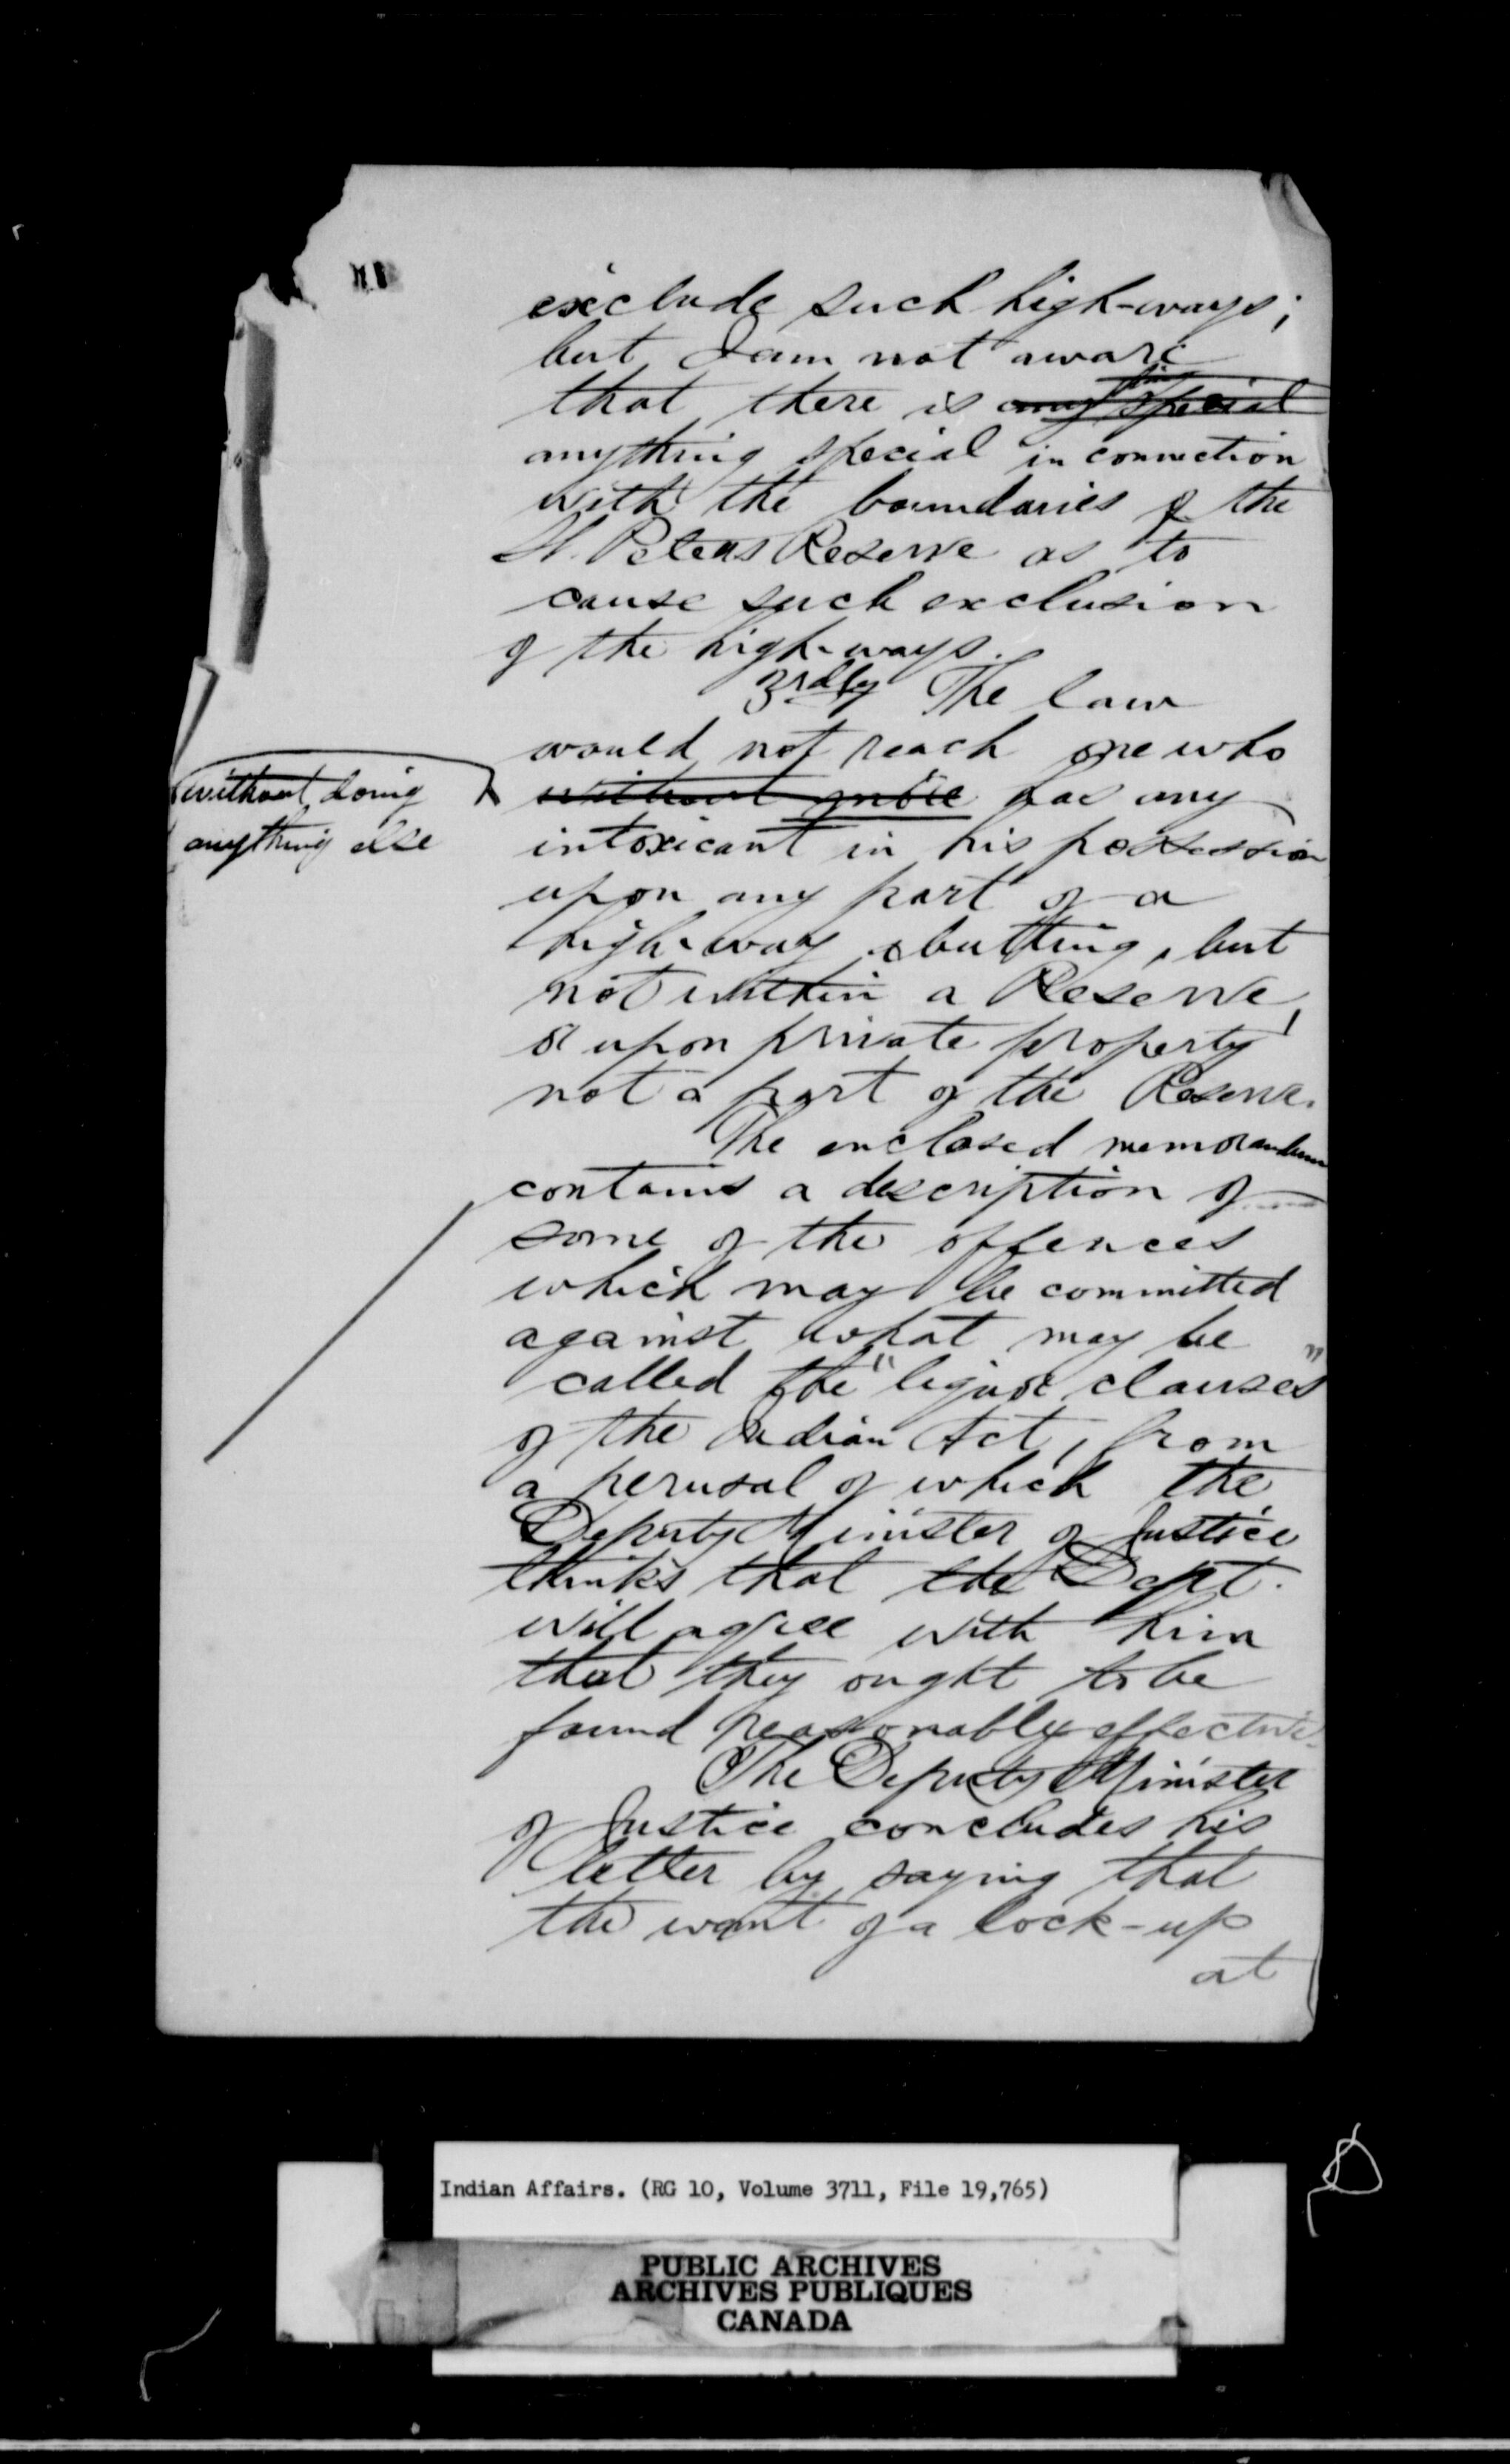 exclude such high-ways;
but I am not aware
that there is any special
anything special in connection
with the boundaries of the
St. Peters Reserve as to
cause such exclusion
of the high-ways.
3rdly The law
would not reach one who
without doing
anything else
without more has any
intoxicant in his possession
upon any part of a
high-way abutting, but
not within a Reserve,
or upon private property
not a part of the Reserve.
The enclosed memorandum
contains a description of
some of the offences
which may be committed
against what may be
called the "liquor clauses"
of the Indian Act, from
a perusal of which the
Deputy Minister of Justice
thinks that the Dept.
will agree with him
that they ought to be
found reasonably effective.
The Deputy Minister
of Justice concludes his
letter by saying that
the want of a lock-up
at
Indian Affairs. (RG 10, Volume 3711, File 19,765)
PUBLIC ARCHIVES
ARCHIVES PUBLIQUES
CANADA